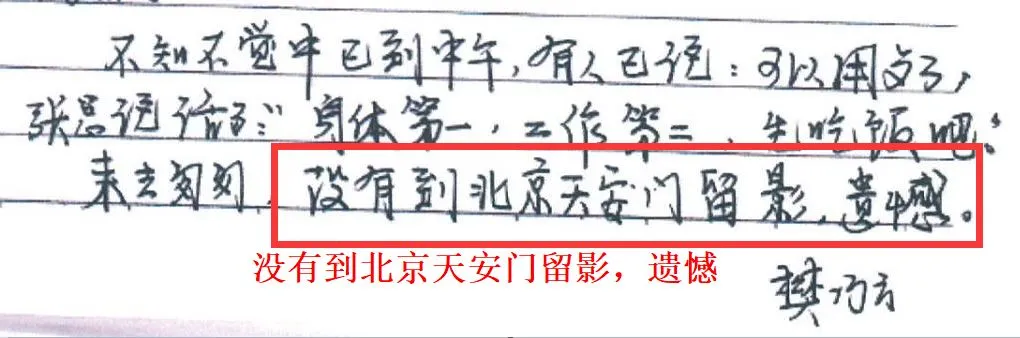 不知不觉中已到中午,有人已说:可以用文了,
张总说话了:"身体第一,工作第二,先吃饭吧。"
来去匆匆,没有到北京天安门留影,遗憾。
没有到北京天安门留影，遗憾
樊巧云